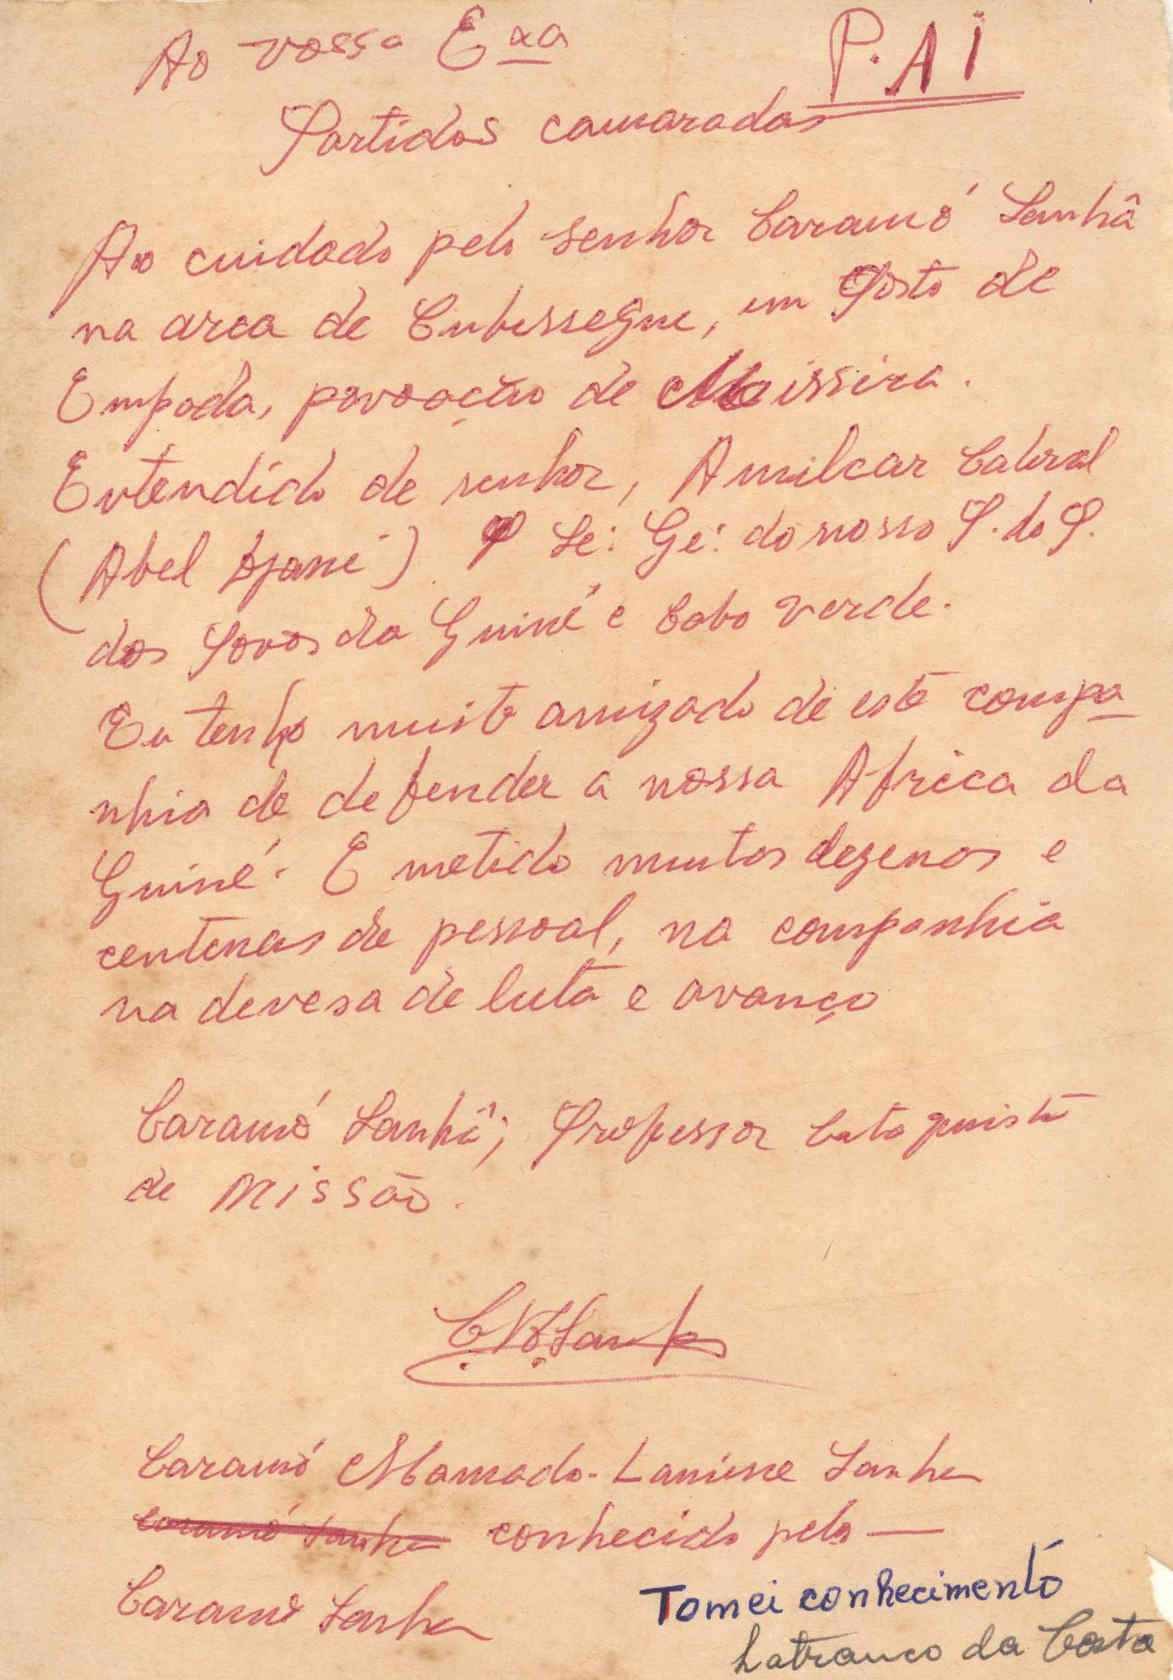 Ao vossa Exa
P.AI
Partidos camaradas
Ao cuidado pelo senhor Caramó Sanhâ
na area de Cubessegue, em Posto de
Empada, povoação de Missira.
Entendido de senhor, Amilcar Cabral
(Abel Djassi) Se: Ge: do nosso P. do P.
dos Povos da Guiné e Cabo verde.
Eu tenho muito amizado de este compa
nhia de defender a nossa Africa da
Guiné. E metido muitos dezenas e
centenas de pessoal, na companhia
na devesa de luta e avanço
Caramó Sanhâ; Professor Cataquista
de Missão.
Caramó Mamado-Lamine Sanha
Caramó Sanha conhecido pelo —
Caramó Sanha
Tomei conhecimento
Lafranco da Costa